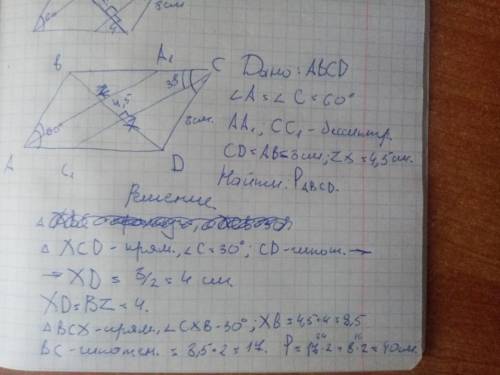 8см
4
B
A₁
C
30
4,5
8см.
A
60°
C₁
D
Дано: ABCD
∠A = ∠C = 60°
AA₁, CC₁ - биссектр.
CD = AB = 8см; ZX = 4,5см.
Найти: P ABCD.
Решение
△ XCD - прям., ∠C = 30°; CD - гипот. →
→ XD = 8/2 = 4 см
XD = BZ = 4.
△ BCX - прям., ∠CXB - 30°; XB = 4,5+4 = 8,5
BC - гипотен. = 8,5·2 = 17. P = 17·2 + 8·2 = 40см.